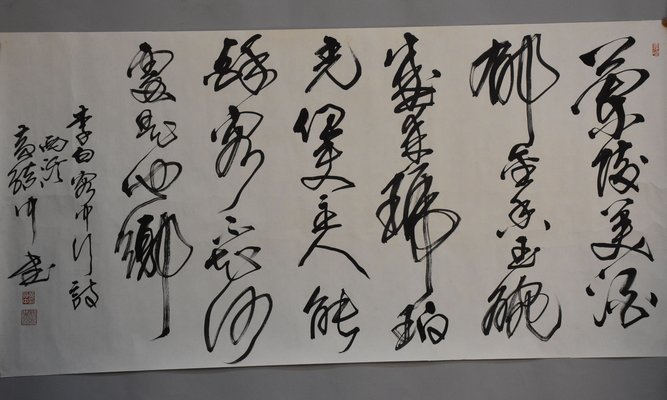 蘭陵美酒
郁金香玉碗
盛来琥珀
光但使主人能
醉客不知何
處是他鄉
李白客中行詩
书